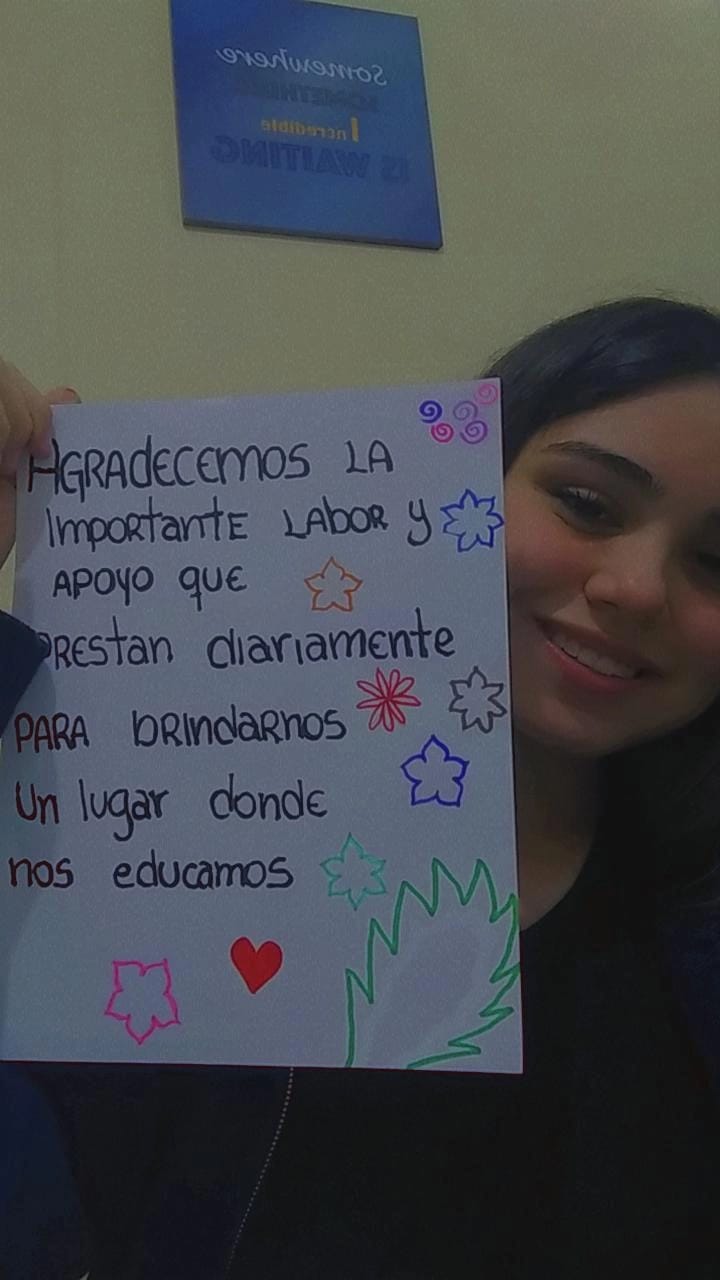 Somewhere
SOMETHING
Incredible
IS WAITING
AGRAdECEmOS LA
ImpORtantE LAboR y
APOyO quE
PREStan dIaRIamEntE
PARA bRIndaRnos
Un lugar dondE
nos educamos